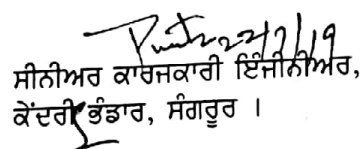 22/7/19
ਸੀਨੀਅਰ ਕਾਰਜਕਾਰੀ ਇੰਜੀਨੀਅਰ,
ਕੇਂਦਰੀ ਭੰਡਾਰ, ਸੰਗਰੂਰ ।